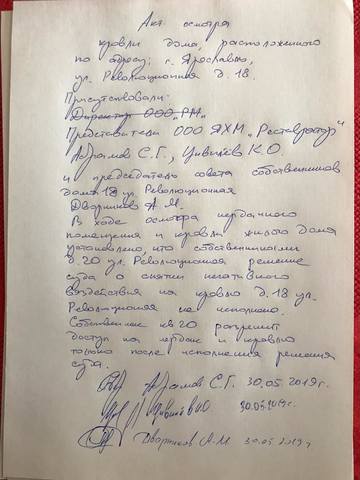 Акт осмотра
кровли дома, расположенного
по адресу: г. Ярославль,
ул. Революционная д. 18.
Присутствовали:
Директор ООО „РМ"
Представители ООО ЯХМ „Реставратор"
Абрамов С.Г., Цивилёв К.О
и председатель совета собственников
дома 18 ул. Революционная
Дворников А.М.
В ходе осмотра чердачного
помещения и кровли жилого дома
установлено, что собственниками
д. 20 ул. Революционная решение
суда о снятии негативного
воздействия на кровлю д. 18 ул.
Революционная не исполнено.
Собственник кв. 20 разрешит
доступ на чердак и кровлю
только после исполнения решения
суда.
Абрамов С.Г. 30.05.2019г.
30.05.2019г.
Дворников А.М 30.05.2019г